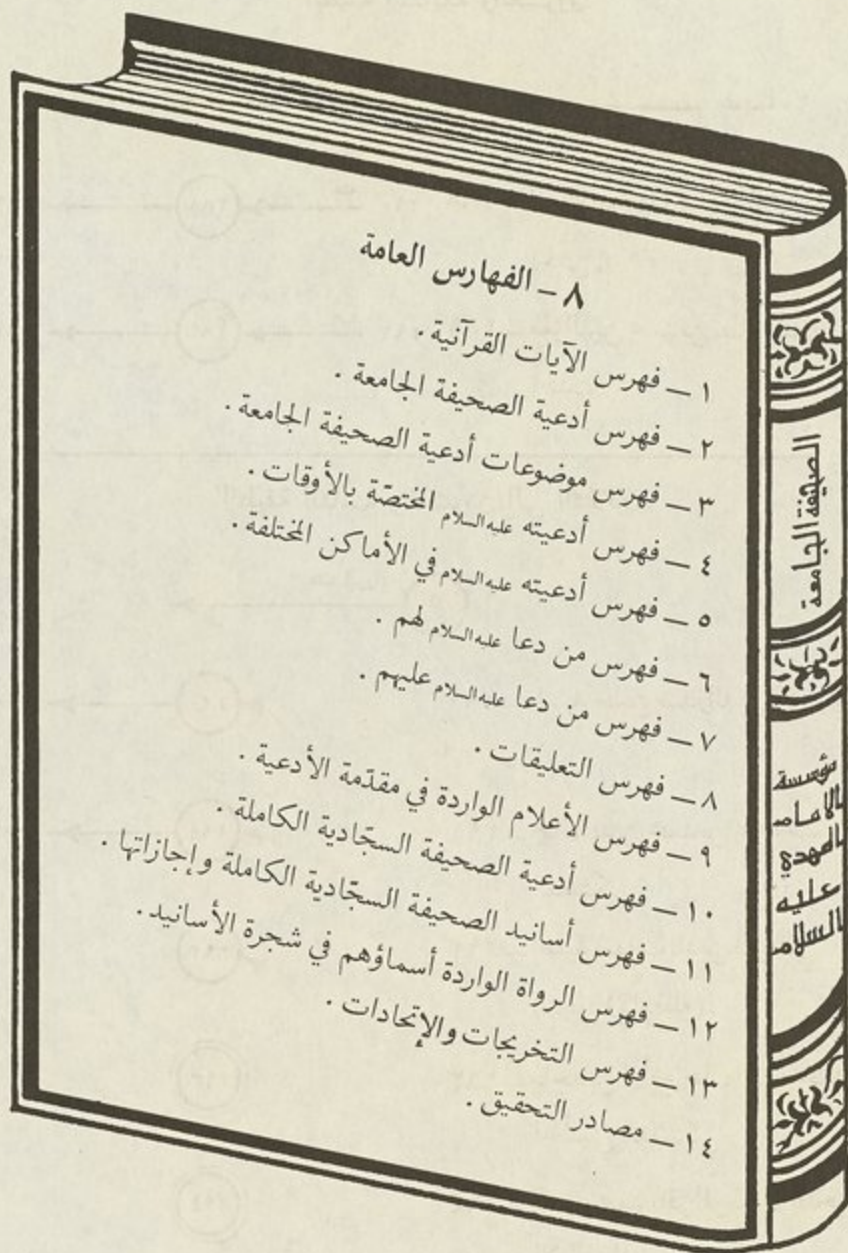 ٨ ــ الفهارس العامة
١ ــ فهرس الآيات القرآنية .
٢ ــ فهرس أدعية الصحيفة الجامعة .
٣ ــ فهرس موضوعات أدعية الصحيفة الجامعة .
٤ ــ فهرس أدعيته عليه السلام المختصّة بالأوقات .
٥ ــ فهرس أدعيته عليه السلام في الأماكن المختلفة .
٦ ــ فهرس من دعا عليه السلام لهم .
٧ ــ فهرس من دعا عليه السلام عليهم .
٨ ــ فهرس التعليقات .
٩ ــ فهرس الأعلام الواردة في مقدّمة الأدعية .
١٠ ــ فهرس أدعية الصحيفة السجّادية الكاملة .
١١ ــ فهرس أسانيد الصحيفة السجّادية الكاملة وإجازاتها .
١٢ ــ فهرس الرواة الواردة أسماؤهم في شجرة الأسانيد .
١٣ ــ فهرس التخريجات والإتحادات .
١٤ ــ مصادر التحقيق .
الصحيفة الجامعة
مؤسسة
الامام
المهدي
عليه
السلام